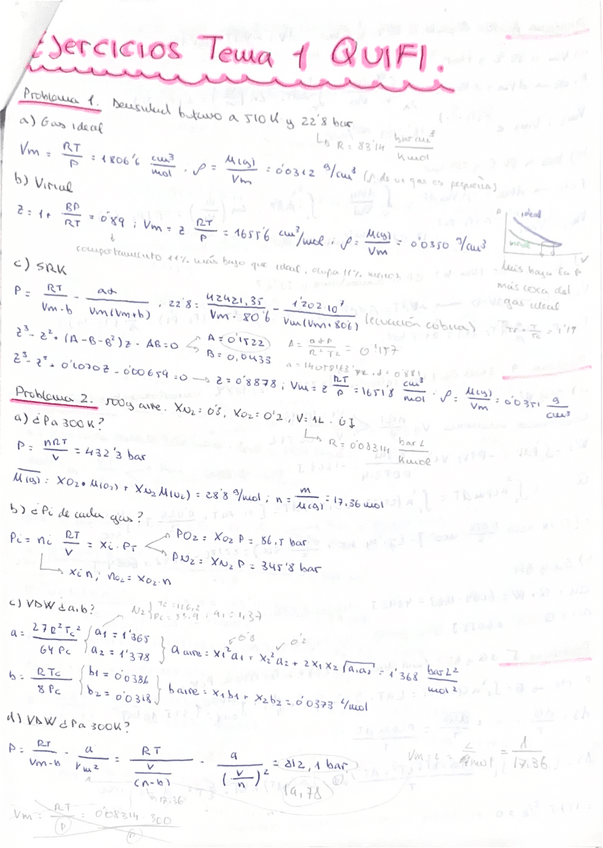 Ejercicios Tema 1 QUIFI.
Problema 1. Densidad butano a 510 K y 22'8 bar
a) Gas ideal
↳ R = 83'14 bar cm³ / K mol
Vm = RT/P = 1806'6 cm³/mol · ρ = M(g)/Vm = 0'0312 g/cm³ (ρ de un gas es pequeña)
b) Virial
z = 1 + BP/RT = 0'89 ; Vm = z RT/P = 1655'6 cm³/mol ; ρ = M(g)/Vm = 0'0350 g/cm³
ideal
comportamiento 11% más bajo que ideal, ocupa 11% menos
más baja la P
más cerca del
gas ideal
c) SRK
P = RT/(Vm-b) - aα/(Vm(Vm+b)) · 22'8 = 42421,35/(Vm - 80'6) - 1'202·10⁷/(Vm(Vm+80'6)) (ecuación cúbica) Tr = T/Tc = 1'19
z³ - z² + (A-B-B²)z - AB = 0
A = 0'1522
B = 0,0433
z³ - z² + 0'1070z - 0'00659 = 0 → z = 0'8878 ; Vm = z RT/P = 1651'8 cm³/mol · ρ = M(g)/Vm = 0'0351 g/cm³
Problema 2. 500g aire. XN₂ = 0'8, XO₂ = 0'2, V = 1L
a) ¿P a 300K?
↳ R = 0'08314 bar L / K mol
P = nRT/V = 432'3 bar
M(g) = XO₂ · M(O₂) + XN₂ M(N₂) = 28'8 g/mol ; n = m/M(g) = 17,36 mol
b) ¿Pi de cada gas?
Pi = ni RT/V = xi · PT
PO₂ = XO₂ P = 86,5 bar
PN₂ = XN₂ P = 345'8 bar
↳ xi n ; nO₂ = xO₂ · n
c) VDW ¿a, b?
N₂ { Tc = 126,2 Pc = 33.9 · a₁ = 1,37
0'8 0'2
a = 27R²Tc²/64Pc { a₁ = 1'365 a₂ = 1'378 } a aire = x₁² a₁ + x₂² a₂ + 2x₁x₂ √(a₁a₂) = 1'368 bar L²/mol²
b = RTc/8Pc { b₁ = 0'0386 b₂ = 0'0318 } b aire = x₁b₁ + x₂b₂ = 0'0373 L/mol
d) VDW ¿P a 300K?
P = RT/(Vm-b) - a/Vm² = RT/(V/(n-b)) - a/(V/n)² = 812,1 bar
Vm = 1/17.36
17.36
Vm = RT/P = 0'08314 · 300 / P